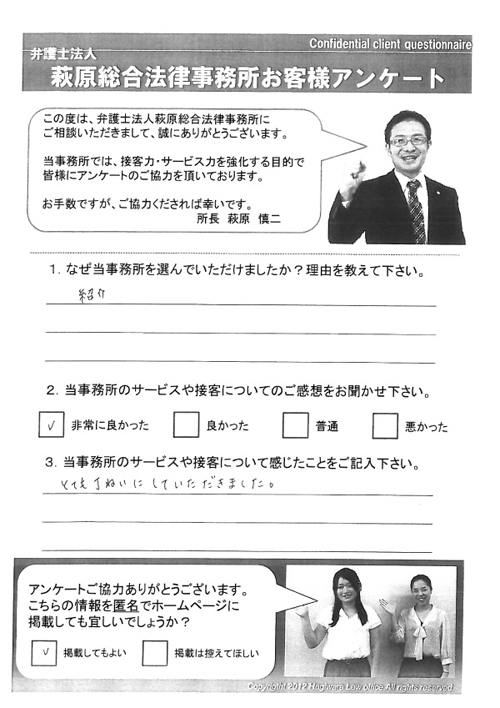 Confidential client questionnaire
弁護士法人
萩原総合法律事務所お客様アンケート
この度は、弁護士法人萩原総合法律事務所に
ご相談いただきまして、誠にありがとうございます。
当事務所では、接客力・サービス力を強化する目的で
皆様にアンケートのご協力を頂いております。
お手数ですが、ご協力くだされば幸いです。
所長 萩原 慎二
1. なぜ当事務所を選んでいただけましたか？理由を教えて下さい。
紹介
2. 当事務所のサービスや接客についてのご感想をお聞かせ下さい。
✓ 非常に良かった 良かった 普通 悪かった
3. 当事務所のサービスや接客について感じたことをご記入下さい。
とても丁ねいにしていただきました。
アンケートご協力ありがとうございます。
こちらの情報を匿名でホームページに
掲載しても宜しいでしょうか？
✓ 掲載してもよい 掲載は控えてほしい
Copyright 2012 Hagiwara Law office All rights reserved